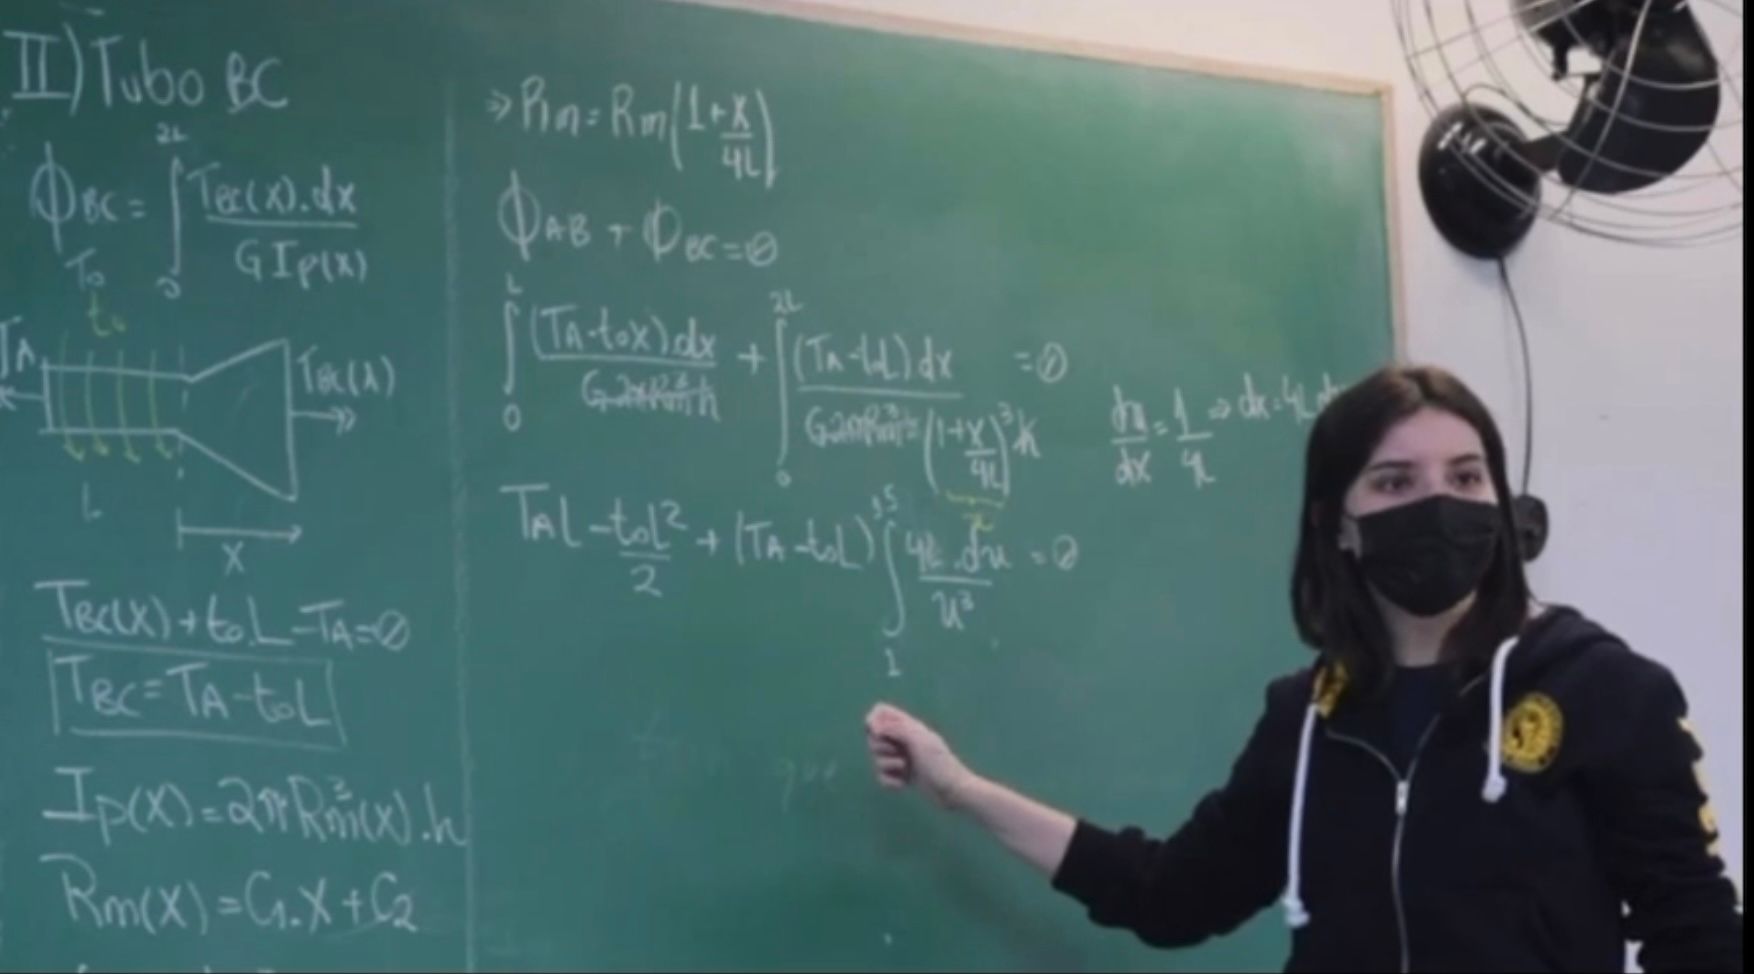 II) Tubo BC
2L
ϕBC = ∫ TBC(x).dx
GIp(x)
0
T0
t0
TA
TBC(x)
L
x
TBC(x) + t0.L - TA = 0
TBC = TA - t0L
Ip(x) = 2πRm³(x).h
Rm(x) = C1.x + C2
⇒ Rm = Rm(1+x/4L)
ϕAB + ϕBC = 0
L
2L
∫ (TA - t0x).dx / G2πRm³h + ∫ (TA - t0L)dx / G2πRm³(1+x/4L)³h = 0
0
0
u
du/dx = 1/4L ⇒ dx = 4L.du
1,5
TAL - t0L²/2 + (TA - t0L) ∫ 4L.du/u³ = 0
1